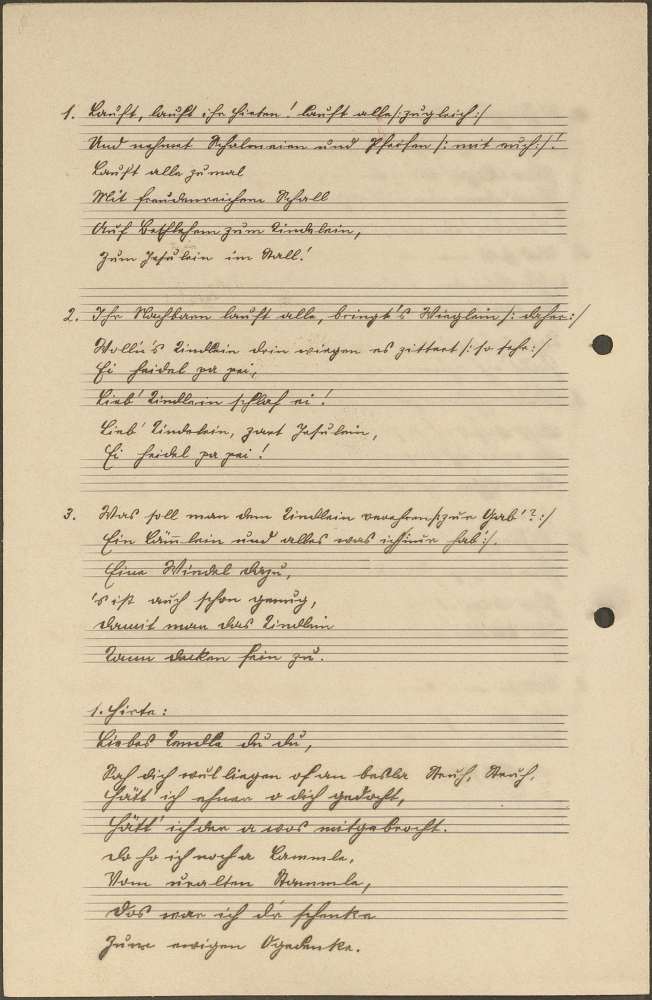 1. Lauft, lauft ihr Hirten! lauft alle /: zugleich :/
Und nehmet Schalmeien und Pfeifen /: mit euch :/!
Lauft alle zumal
Mit freudenreichem Schall
Auf Bethlehem zum Kindelein,
Zum Jesulein im Stall!
2. Ihr Nachbarn lauft alle, bringt's Wieglein /: daher :/
Wolln's Kindlein drin wiegen es zittert /: so sehr :/
Ei heidel pa pei,
Lieb' Kindlein schlaf ei!
Lieb' Kindelein, zart Jesulein,
Ei heidel pa pei!
3. Was soll man dem Kindlein verehren /: zur Gab'? :/
Ein Lämlein und alles was ich /: nur hab' :/.
Eine Windel dazu,
's ist auch schon genug,
damit man das Kindlein
Kann decken fein zu.
1. Hirte:
Liebes du du,
Sah dich liegen of an Struh, Struh.
Hätt' ich ehner o dich gedocht,
Hätt' ich der a wos mitgebrocht.
do ho ich noch a Lammle,
Vom uralten Stammle,
Dos war ich dir schenke
Zum ewigen Ogedenke.